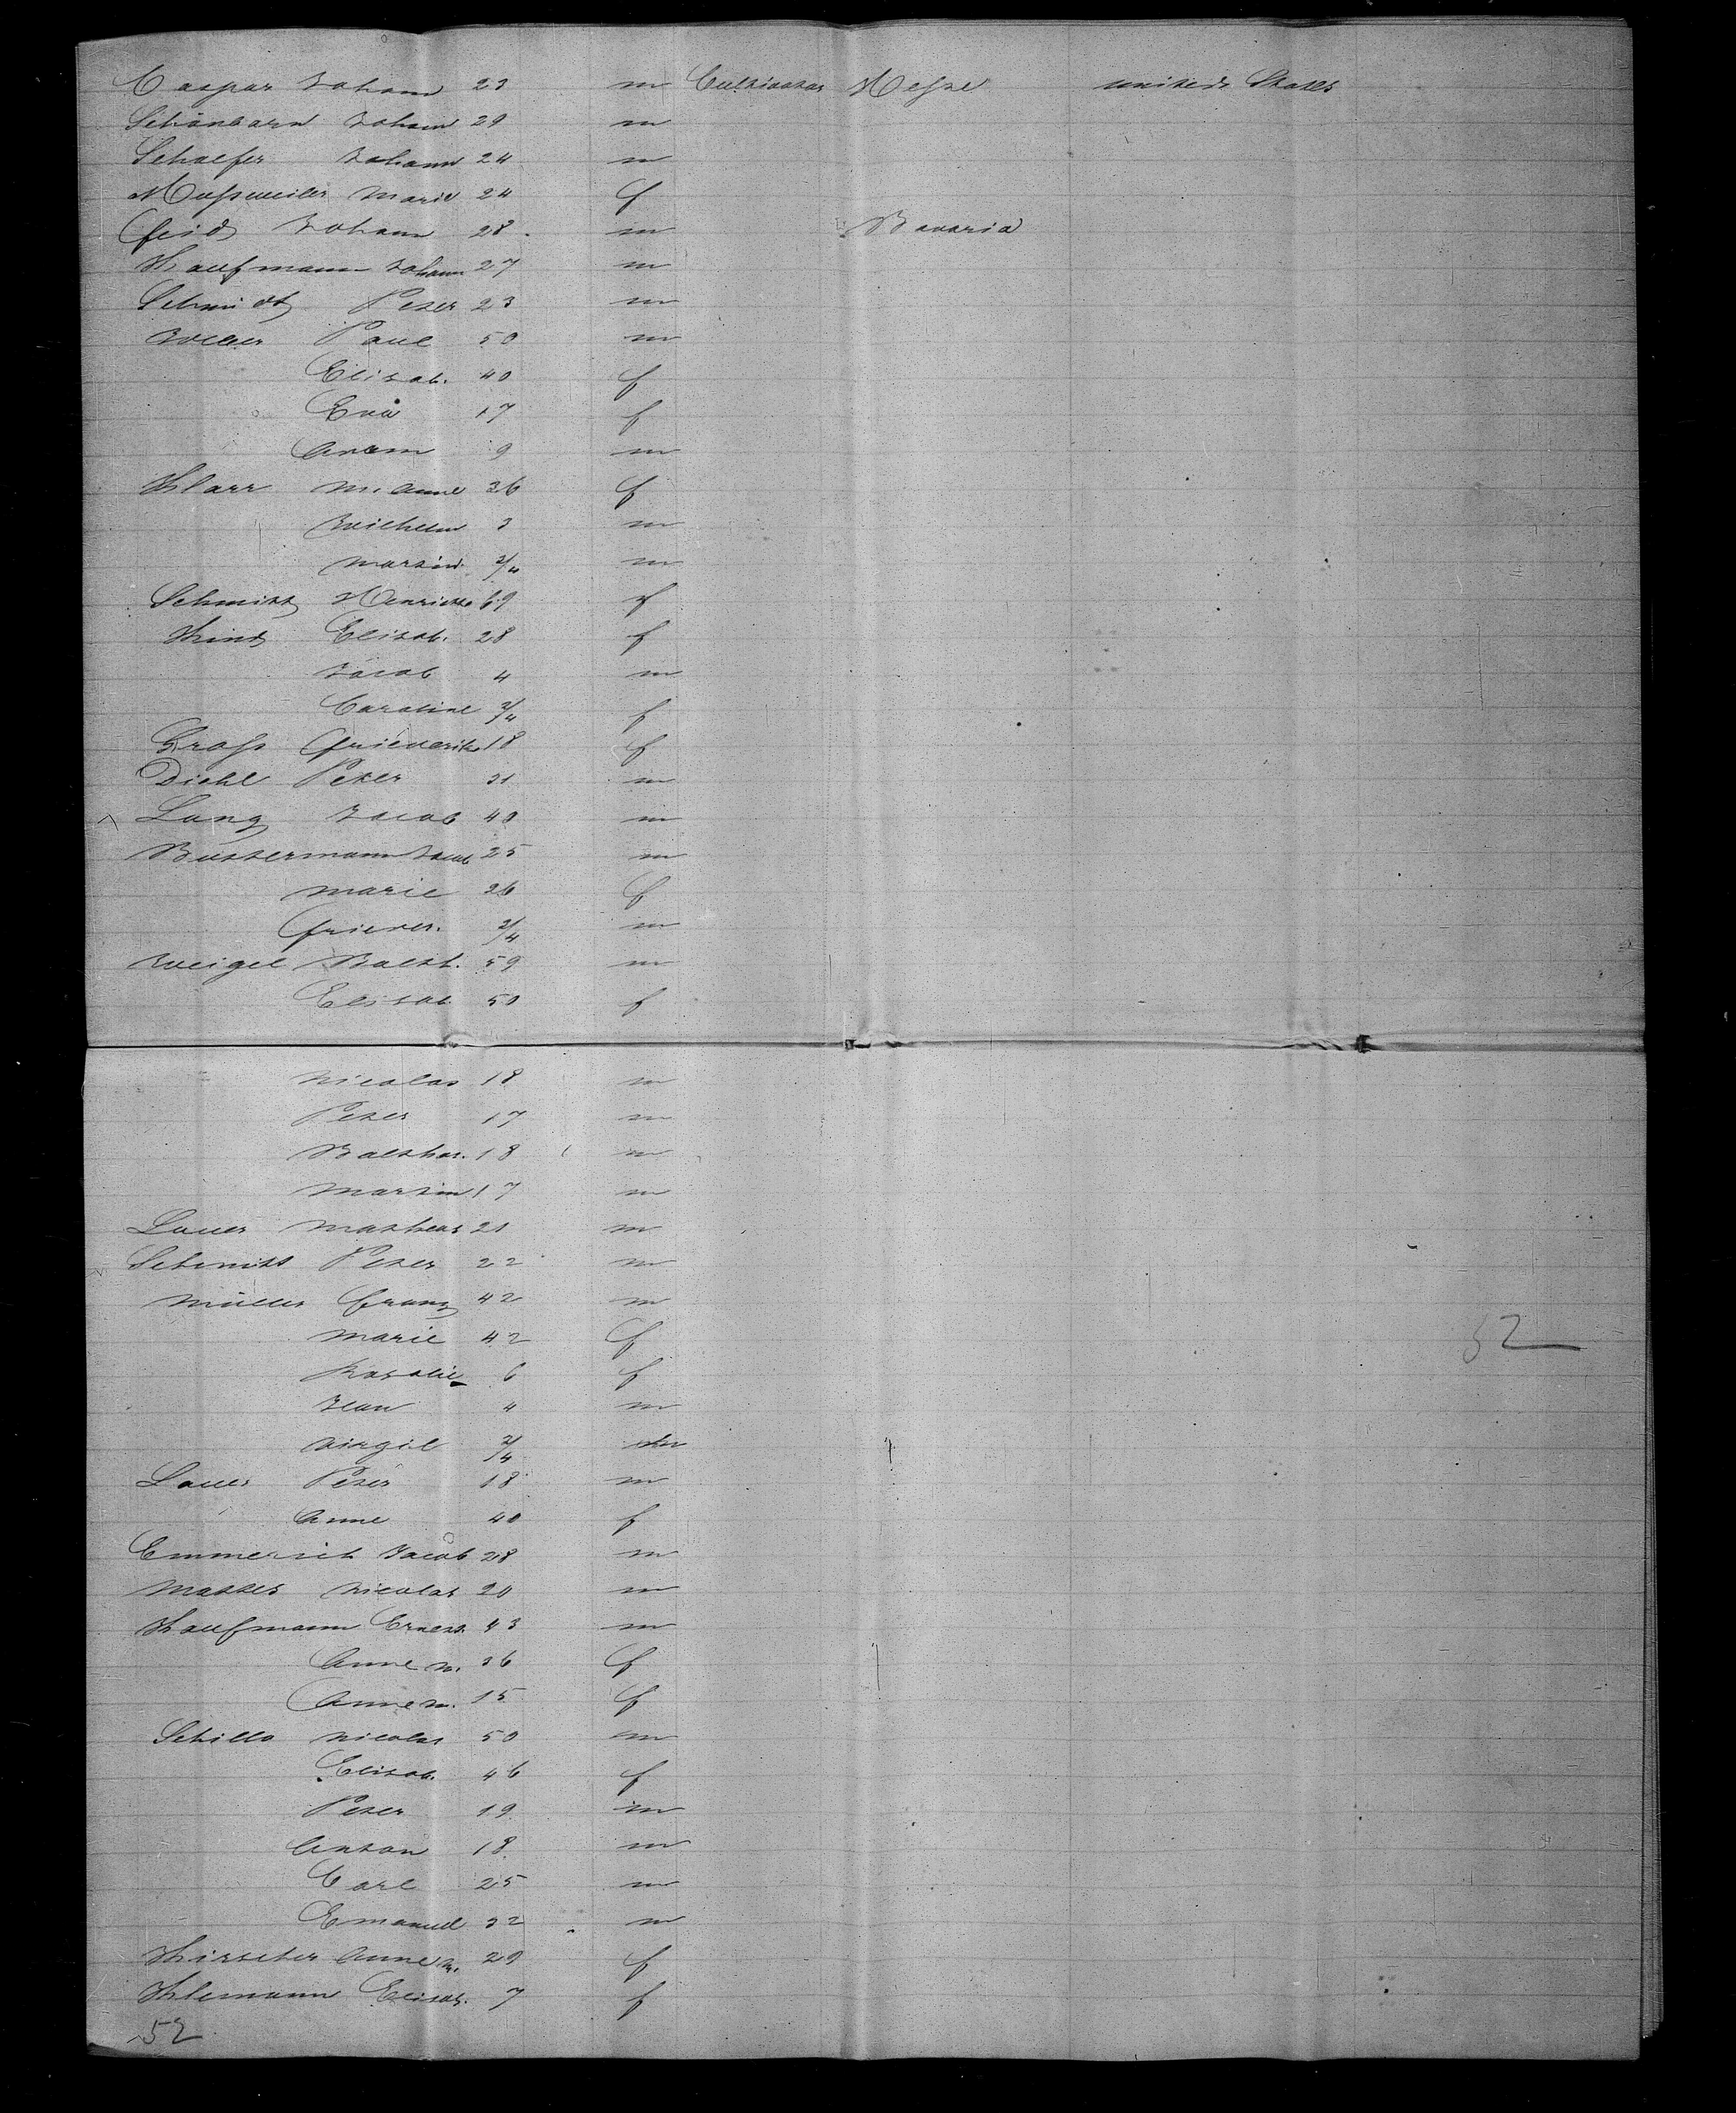 Caspar Johann 23 m Cultivator Hesse united States
Schönborn Johann 29 m
Schaefer Johann 24 m
Mussweiler Marie 24 f
Feid Johann 28 m Bavaria
Kaufmann Johann 27 m
Schmidt Peter 23 m
Weber Paul 50 m
Elisab. 40 f
Eva 17 f
Adam 9 m
Klarr M. Anne 36 f
Wilhelm 3 m
Martin 3/4 m
Schmitt Henriette 69 f
Kind Elisab. 28 f
Jacob 4 m
Caroline 3/4 f
Gross Friederike 18 f
Diehl Peter 31 m
Lang Jacob 40 m
Bustermann Jacob 25 m
Marie 26 f
Frieder. 3/4 m
Weigel Balth. 59 m
Elisab. 50 f
Nicolas 18 m
Peter 17 m
Balthas. 18 m
Martin 17 m
Lauer Matheas 21 m
Schmitt Peter 22 m
Müller Franz 42 m
Marie 42 f 52
Rosalie 6 f
Jean 4 m
Virgil 3/4 m
Lauer Peter 18 m
Anne 40 f
Emmerich Jacob 28 m
Matter Nicolas 20 m
Kaufmann Ernest 43 m
Anne M. 36 f
Anne M. 15 f
Schillo Nicolas 50 m
Elisab. 46 f
Peter 19 m
Anton 18 m
Carl 25 m
Emanuel 32 m
Kirscher Anne M. 29 f
Klemann Elisab. 7 f
52